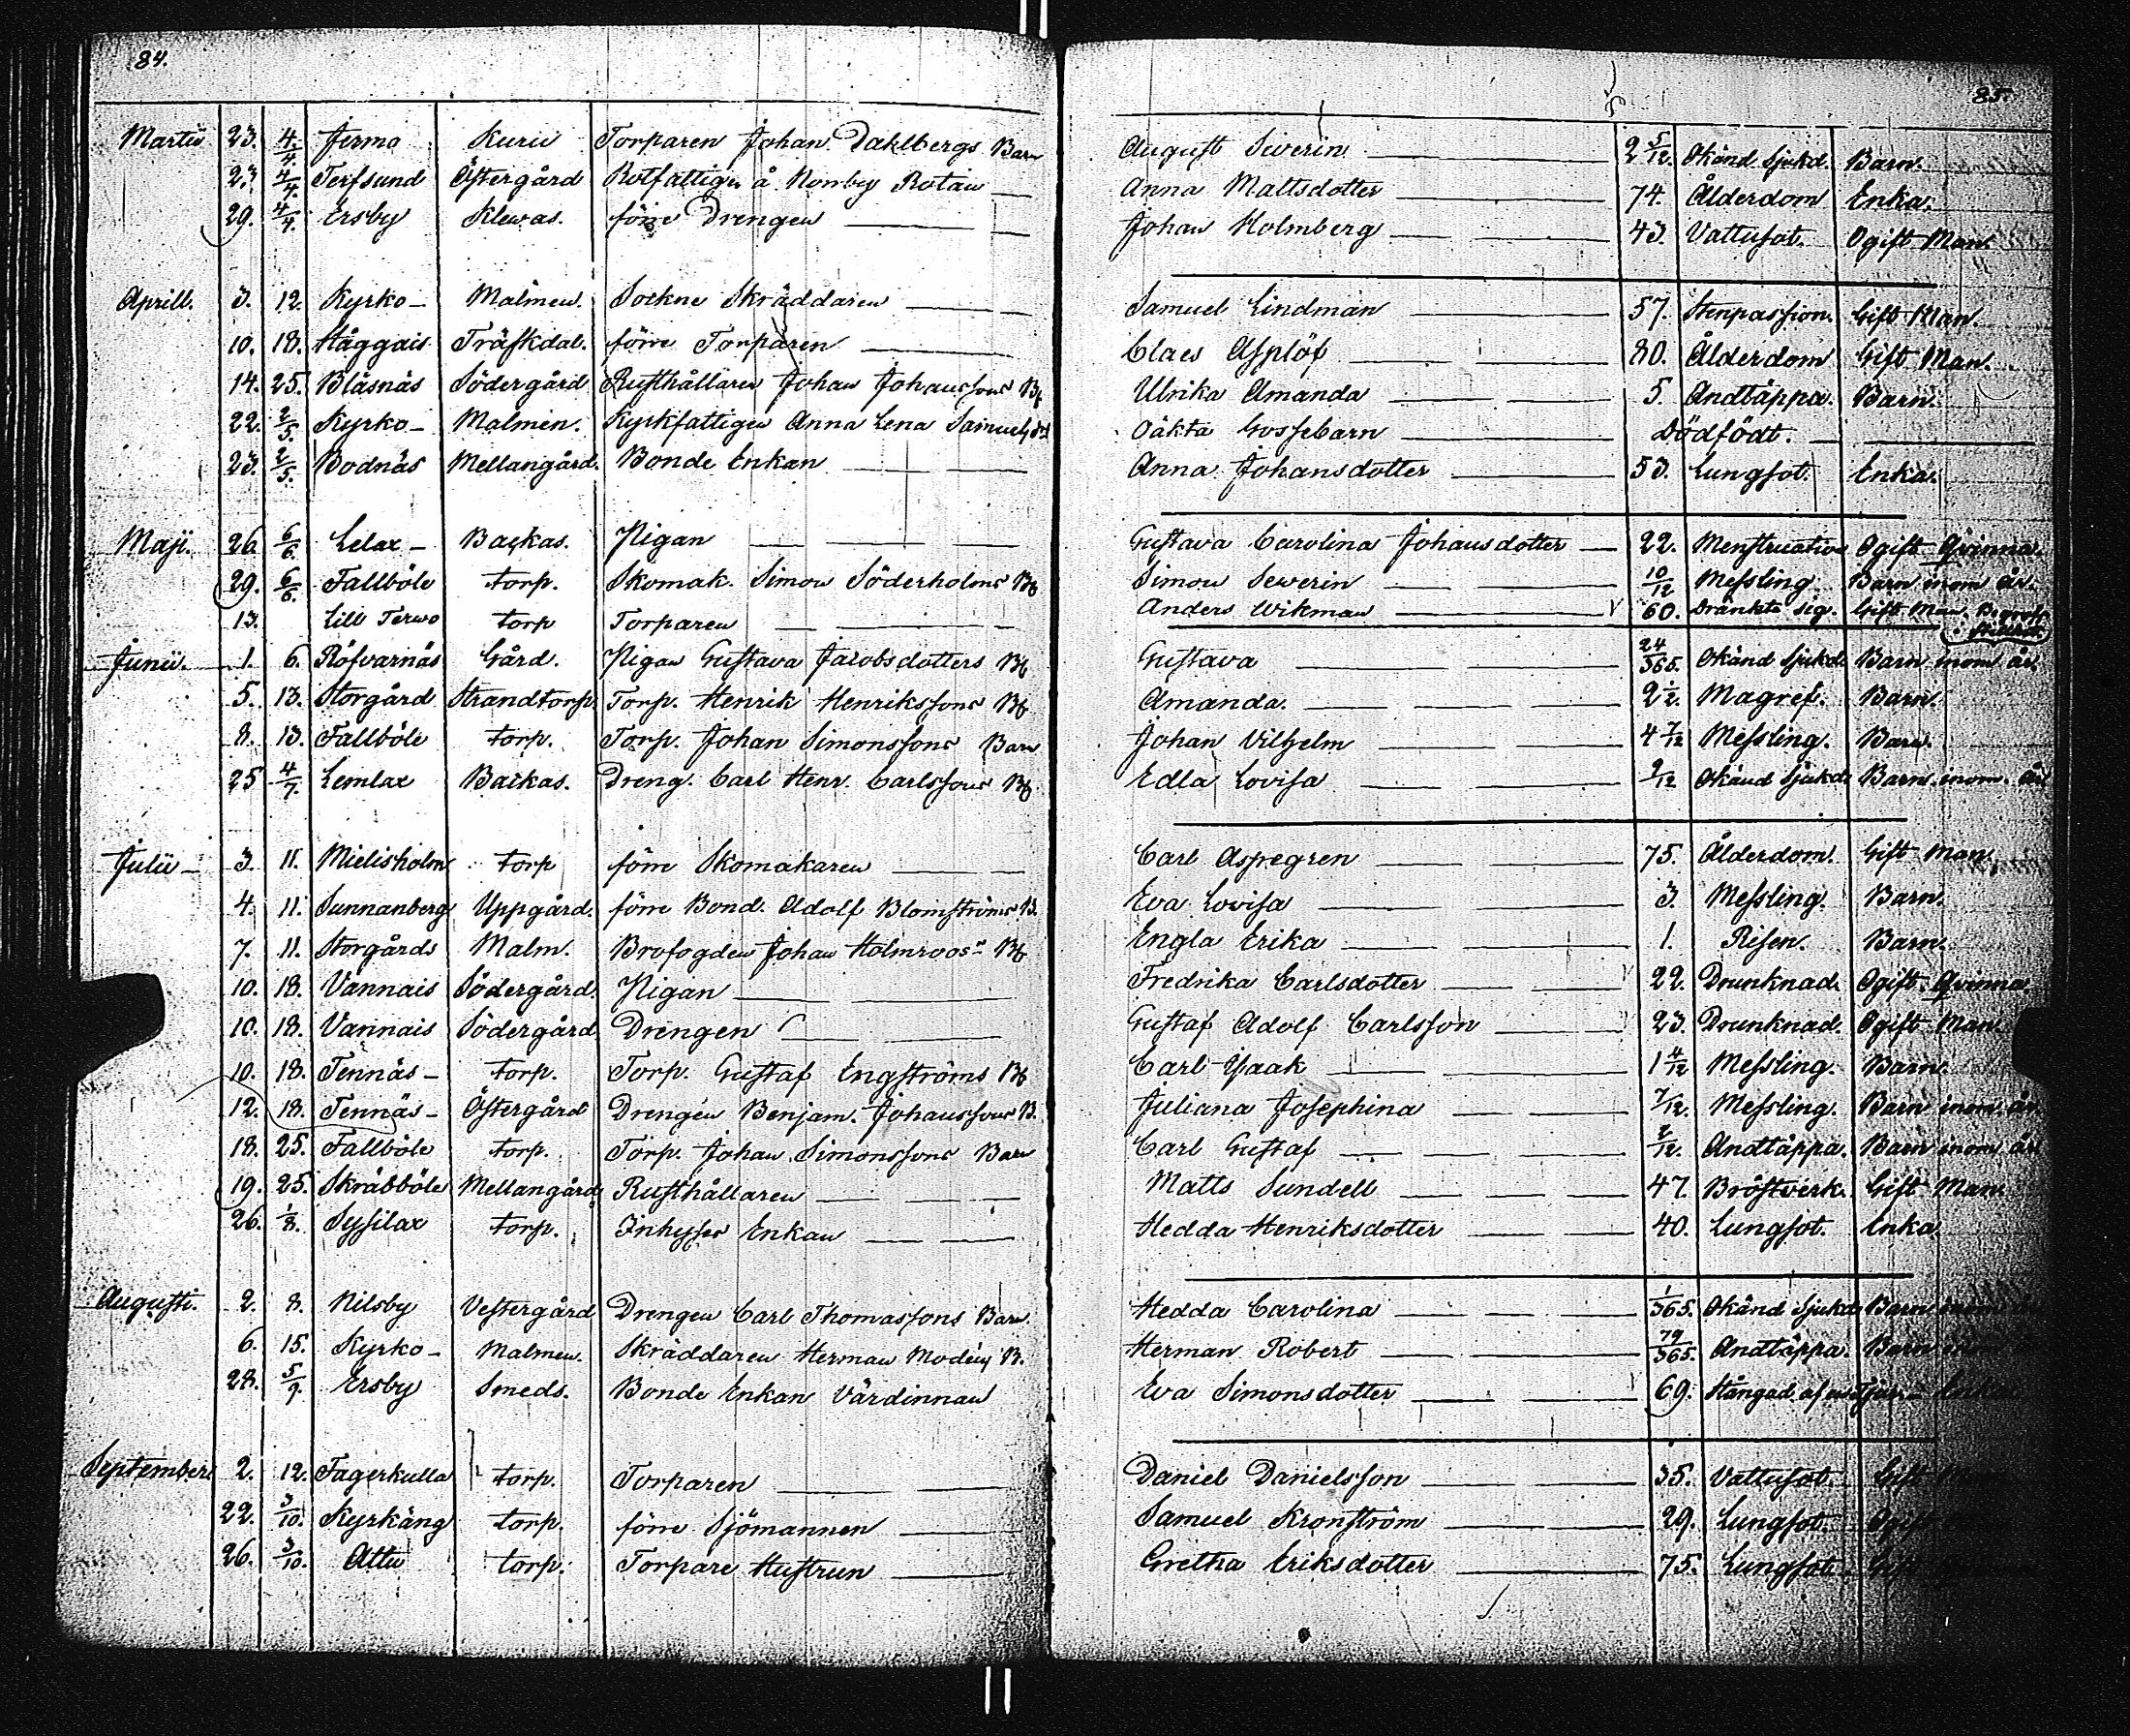 84.
85.
Martii 23. 4/4. Jermo Kurii Torparen Johan Dahlbergs Barn August Siverin 2 5/12. Okänd Sjukd. Barn.
23 4/4. Terfsund Östergård Rotfattign å Nornby Rotan Anna Mattsdotter 74. Ålderdom Enka.
29. 4/4. Ersby Klewas. förre Drengen Johan Holmberg 43. Vattusot. Ogift Man.
Aprill. 3. 12. Kyrko- Malmen. Sockne Skräddaren Samuel Lindman 57. Stenpassion. Gift Man.
10. 18. Håggais Träskdal. förre Torparen Claes Asplöf 80. Ålderdom Gift Man.
14. 25. Bläsnäs Södergård Rusthållaren Johan Johanssons B. Ulrika Amanda 5. Andtäppa. Barn.
22. 2/5. Kyrko- Malmen. Kyrkfattigen Anna Lena Samuelsd Oäkta Gossebarn Dödfödt.
23. 2/5. Bodnäs Mellangård. Bonde Enkan Anna Johansdotter 53. Lungsot. Enka.
Maji. 26 6/6. Lelax- Backas. Pigan Gustava Carolina Johansdotter 22. Menstruation Ogift Qvinna.
29. 6/6. Fallböle torp. Skomak. Simon Söderholms B Simon Sewerin 10/12 Messling. Barn inom år.
13. Lill Terwo torp Torparen Anders Wikman 60. Dränkte sig. Gift Man.
Junii. 1. 6. Röfvarnäs Gård. Pigan Gustava Jacobsdotters B Gustava 24/365. Okänd Sjukd. Barn inom år.
5. 13. Storgård Strandtorp. Torp. Henrik Henrikssons B Amanda. 2 1/2. Magref. Barn.
8. 13. Fallböle torp. Torp. Johan Simonssons Barn Johan Vilhelm 4 7/12 Messling. Barn.
25 4/7. Lemlax Backas. Dreng. Carl Henr. Carlssons B Edla Lovisa 9/12 Okänd Sjukd. Barn inom år
Julii- 3 11. Mielisholm torp förre Skomakaren Carl Aspegren 75. Ålderdom. Gift Man.
4. 11. Sunnanberg Uppgård. förre Bond. Adolf Blomströms B. Eva Lovisa 3. Messling. Barn.
7. 11. Storgårds Malm. Brofogden Johan Holmroos B Engla Erika 1. Risen. Barn.
10. 18. Vannais Södergård. Pigan Fredrika Carlsdotter 22. Drunknad. Ogift Qvinna.
10. 18. Vannais Södergård Drengen Gustaf Adolf Carlsson 23. Drunknad. Ogift Man
10. 18. Tennäs- torp. Torp. Gustaf Engströms B Carl Isaak 1 4/12 Messling. Barn.
12. 18. Tennäs- Östergård Drengen Benjam. Johanssons B. Juliana Josephina 7/12. Messling. Barn inom år
18. 25. Fallböle torp. Torp. Johan Simonssons Barn Carl Gustaf 2/12. Andtäppa. Barn inom år
19. 25. Skräbböle Mellangård Rusthållaren Matts Sundell 47. Bröstverk. Gift Man.
26. 1/8. Sysilax torp. Inhyses Enkan Hedda Henriksdotter 40. Lungsot. Enka.
Augusti. 2. 8. Nilsby Vestergård Drengen Carl Thomassons Barn. Hedda Carolina 1/365. Okänd Sjukd. Barn inom
6. 15. Kyrko- Malmen. Skräddaren Herman Modéns B. Herman Robert 79/365. Andtäppa. Barn inom
28. 5/9. Ersby Smeds. Bonde Enkan Värdinnan Eva Simonsdotter 69. Stångad af en Tjur- Enka
September 2. 12. Fagerkulla torp. Torparen Daniel Danielsson 35. Vattusot. Gift
22. 3/10. Kyrkäng torp. förre Sjömannen Samuel Kronström 29. Lungsot. Ogift
26. 3/10. Attu torp. Torpare Hustrun Gretha Eriksdotter 75. Lungsot. Gift